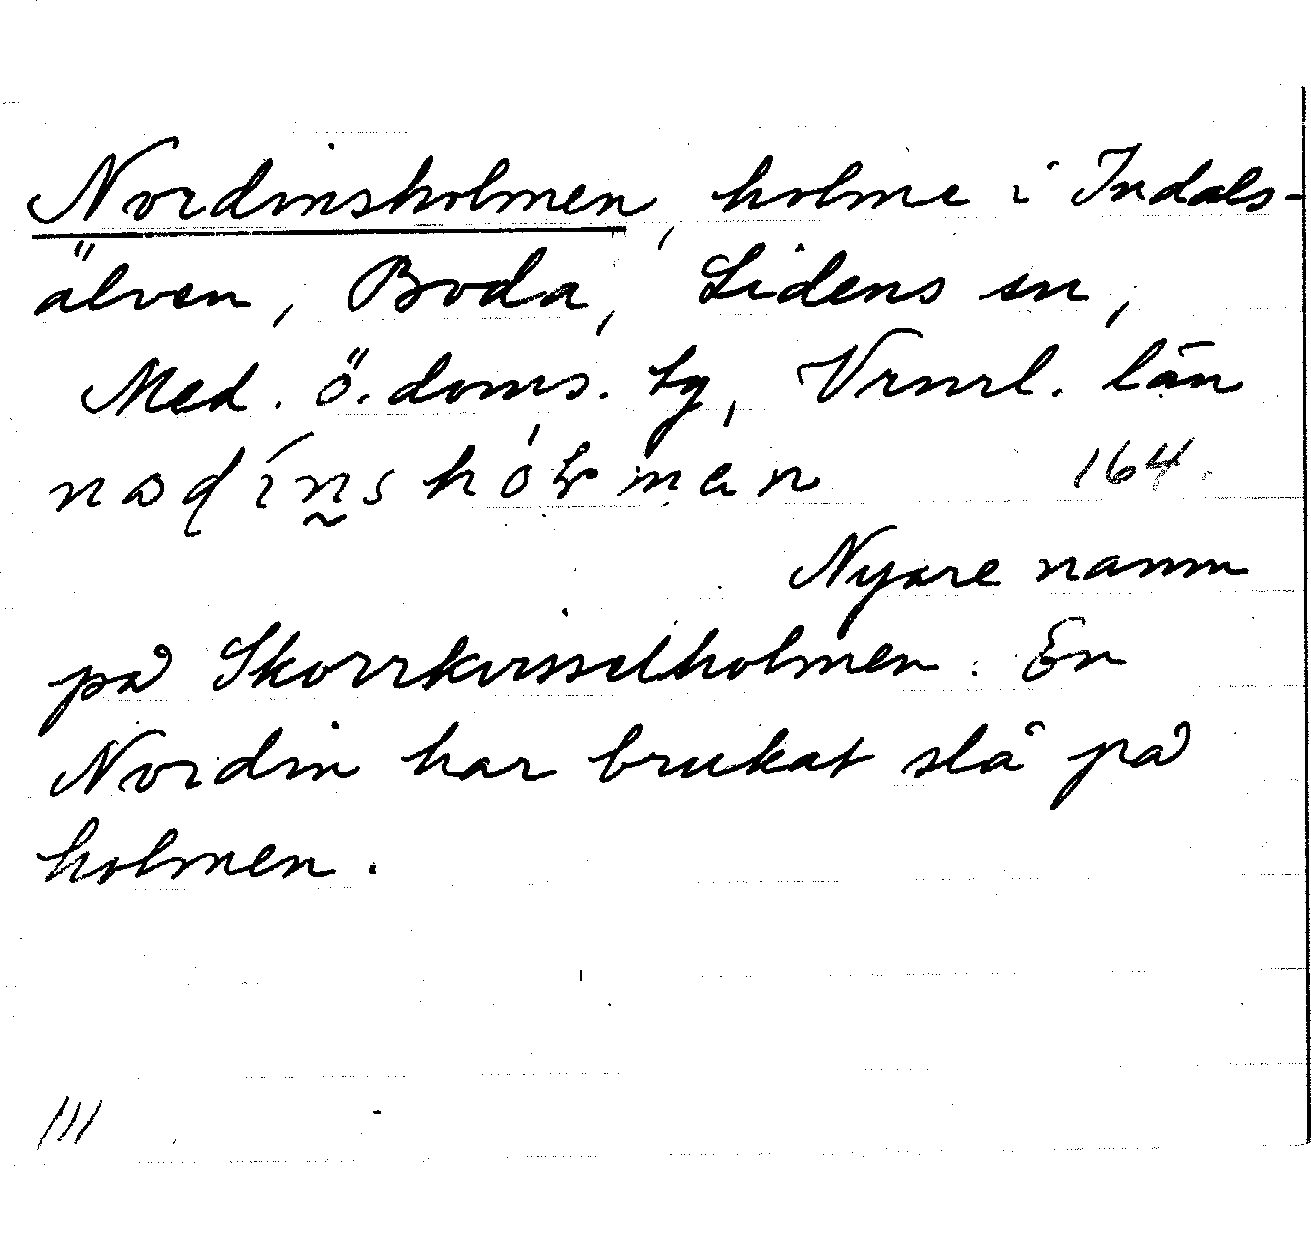 Nordinsholmen, holme i Indals-
älven, Boda, Lidens sn,
Med. ö. doms. tg, Vrnrl. län
164.
Nyare namn
på Skorrkvisselholmen. En
Nordin har brukat slå på
holmen.
III